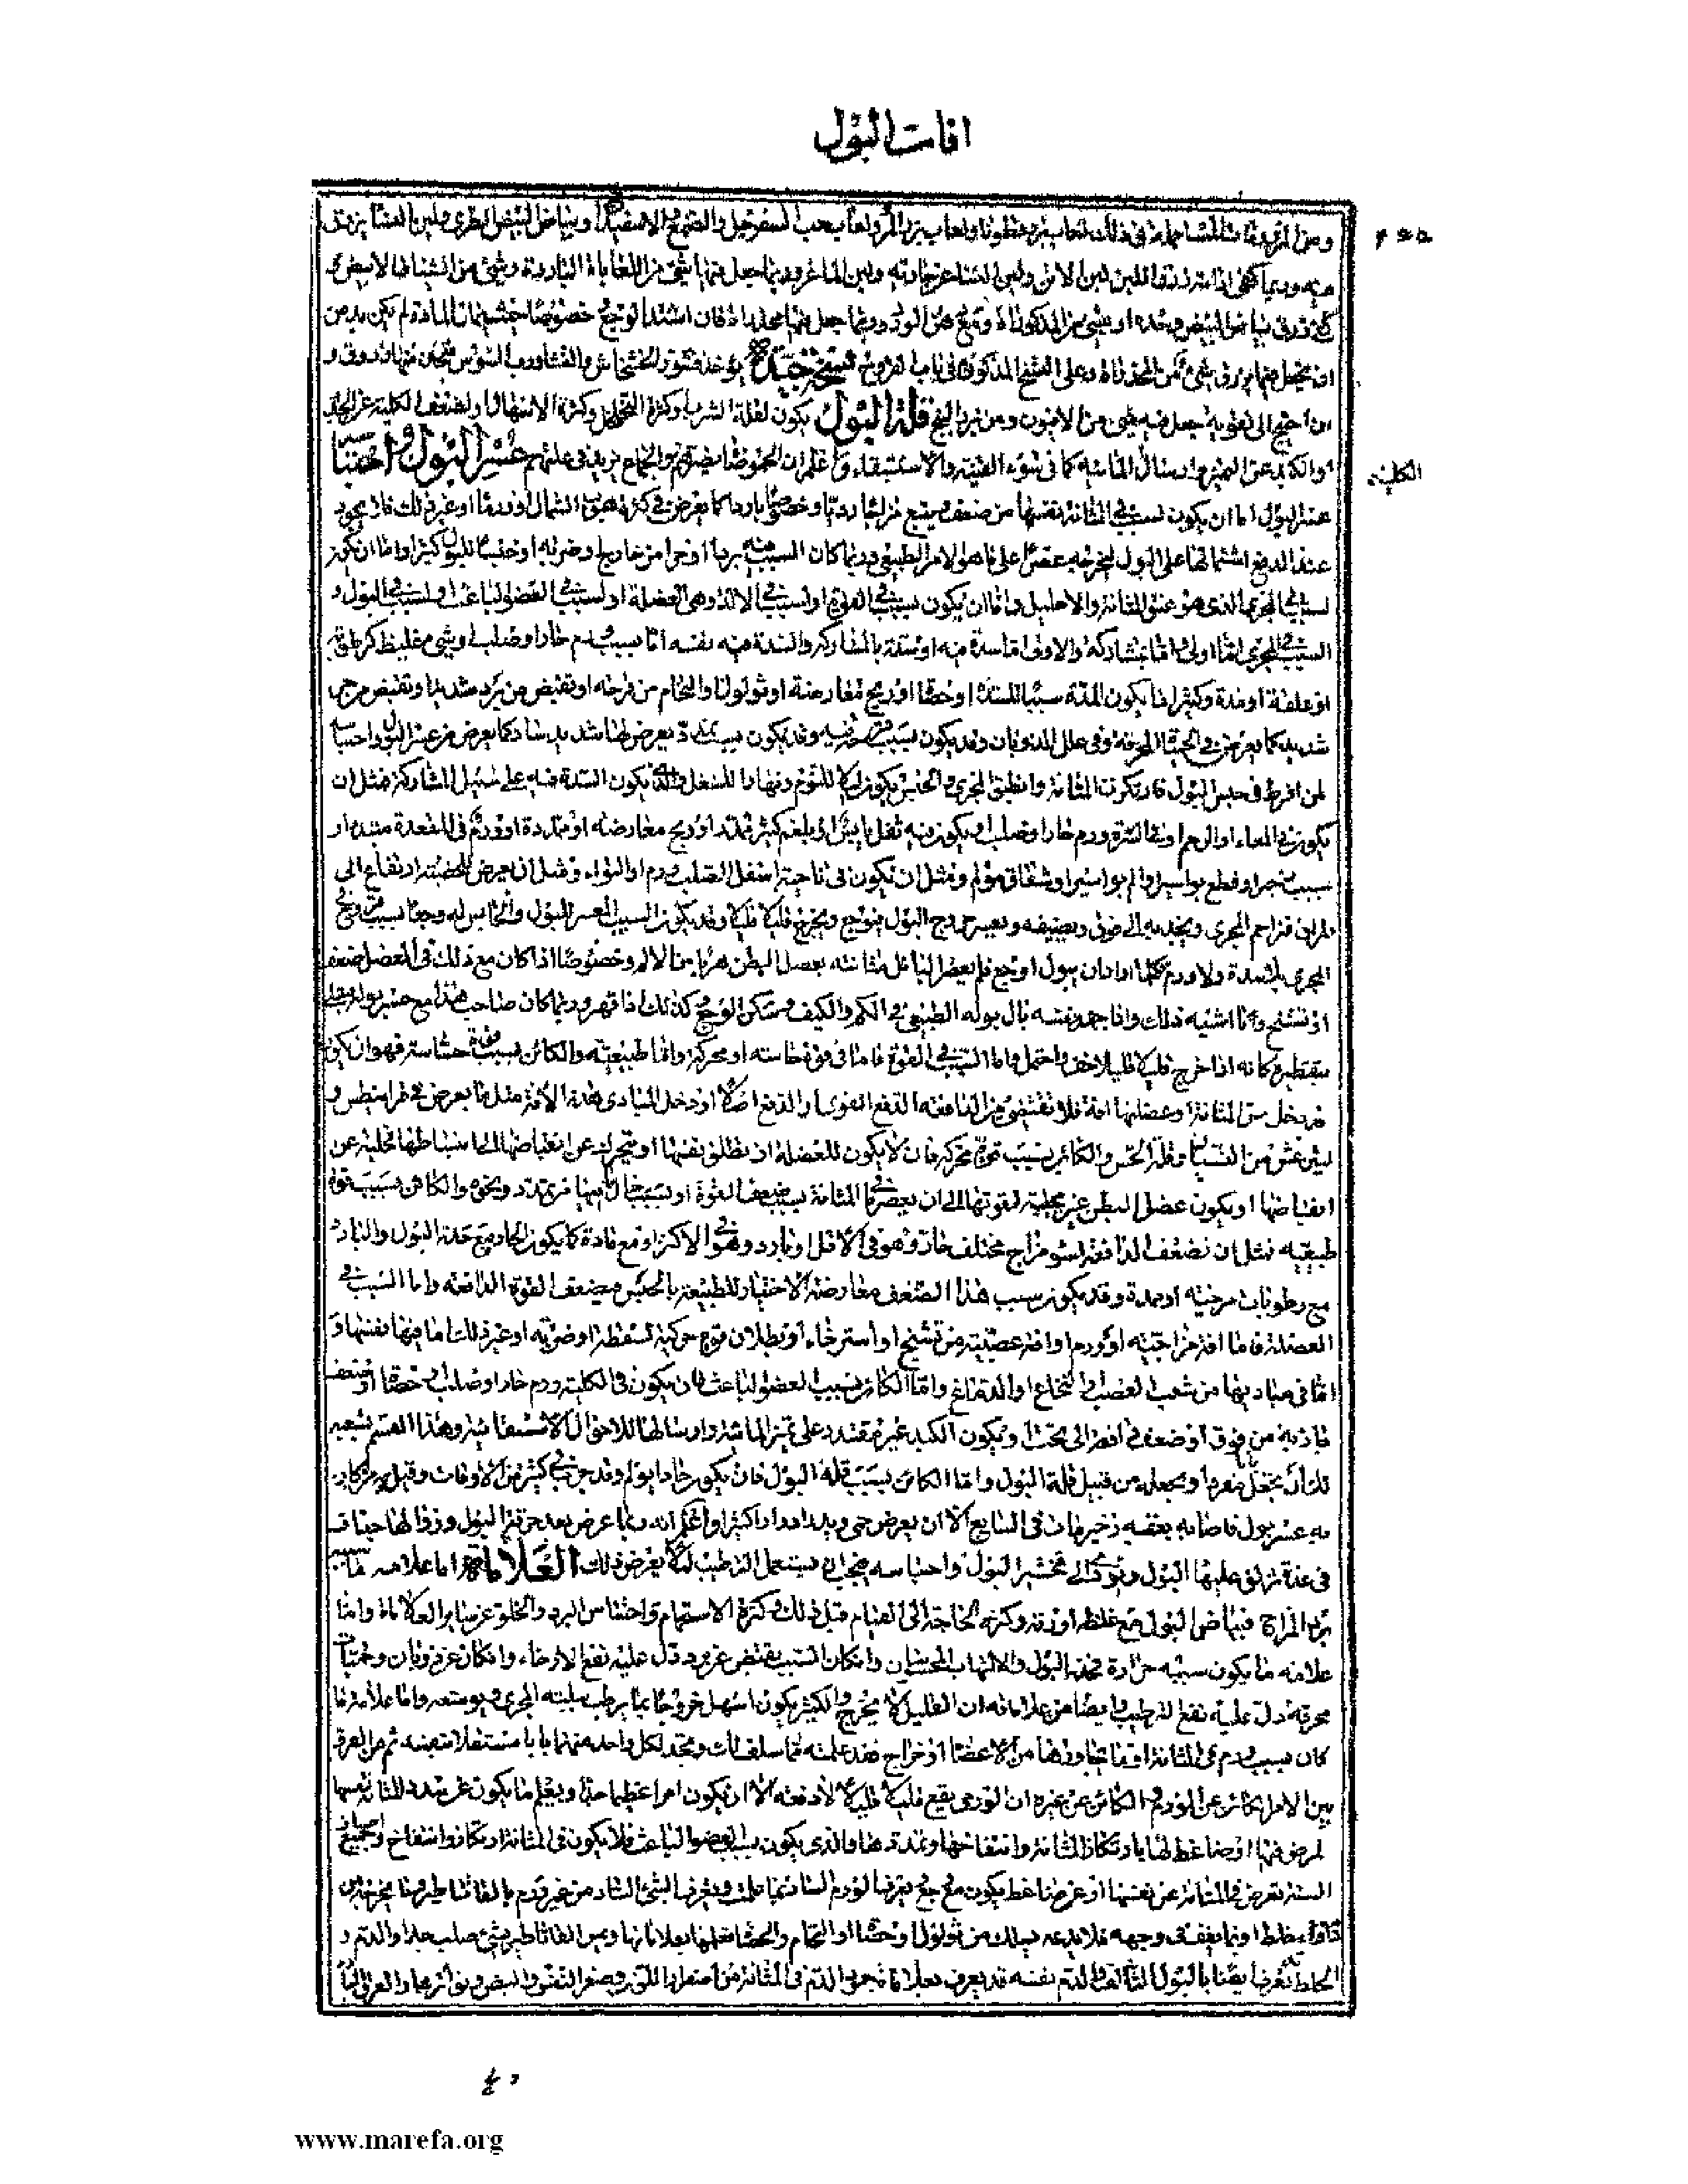 افات البول
ومن المزرقات المسا في ذلك لعاب بزر قطونا ولعاب بزر المر ولعاب حب السفرجل والصمغ والاسفيداج وبياض البيض الطري ولبن النساء يزرق
فيه وربما كفى اللبن لبن الاتن ولبن النساء عن جاريه ولبن الماعز وربما جعل فيها شيء من اللعابات الباردة وشيء من الشياف الابيض
بياض البيض وحده او شيء من المذكورات وربما جعل فيها مخدرات فان اشتد الوجع خصوصا المادة لم يكن بد من
ان يجعل فيما يزرق شيء من المخدرات وعلى النسخ المذكور في باب القروح نسخة جيدة يؤخذ قشور الخشخاش والنشا ورب السوس
ان احتيج الى تقويه جعل فيه شيء من الافيون ومن بزر البنج قلة البول يكون لقلة الشرب او كثرة التحلل وكثرة الاسهال او لضعف الكلية عن الجذب
او الكبد عن التمييز وارسال المائيه كما في سوء القنيه والاستسقاء واعلم ان الحموضات تضرهم والجماع يزيد في علتهم عسر البول واحتباسه
الكلية
عسر البول اما ان يكون لسبب في المثانة نفسها من ضعف يتبع مزاجا رديا وخصوصا باردا كما يعرض في كثرة هبوب الشمال او ورما او غير ذلك فلا يجود
عند الدفع اشتمالها على البول لتخرجه عصرا على ما هو الامر الطبيعي وربما كان السبب فيه بردا او حرا من خارج او ضربه او حبسا للبول كثيرا واما ان يكون
لسبب في المجرى الذي هو عنق المثانة والاحليل واما ان يكون بسبب القوة او لسبب في الالة وهي العضلة او لسبب في العضو الباعث او لسبب في البول و
السبب في المجرى اما اولى واما بمشاركة والاولى اما سدة فيه او سدة بالمشاركة والسدة فيه نفسه اما بسبب ورم حار او صلب او شيء غليظ كرطوبة
او علقة او مدة وكثيرا ما يكون المدة سببا للسدة او حصاة او ريح معارضة او ثؤلول او التحام من قرحه او تقبض من برد شديد او تقبض من حر
شديد كما يعرض في الحميات المحرقة وفي علل الذوبان وقد يكون بسبب قرحة فيه وقد يكون بسبب تمدد يعرض لها شديد ساد كما يعرض من عسر البول واحتباسه
لمن افرط في حبس البول فارتكزت المثانة وانطبق المجرى والحبس يكون ليلا للنوم ونهارا للشغل والذي يكون السدة فيه على سبيل المشاركة مثل ان
يكون في المعاء او الرحم او في السرة ورم حار او صلب او يكون فيه ثفل يابس او بلغم كثير تمدد او ريح معارضه او ممددة او ورم في المقعدة مبتدء او
بسبب زحير او قطع بواسير او الم بواسير او شقاق مؤلم ومثل ان تكون في ناحية اسفل الصلب ورم او التواء ومثل ان يعرض للخصية ارتفاع الى
المراق فيزاحم المجرى ويجذبه الى فوق ويضيقه ويعسر خروج البول بوجع ويخرج قليلا قليلا وقد يكون السبب لعسر البول واحتباسه وجعا بسبب قروح في
المجرى بلا سدة ولا ورم كلما اراد ان يبول اوجع فلم يعصر البائل مثانته بعضل البطن هربا من الالم وخصوصا اذا كان مع ذلك في العضل ضعف
او تشنج وما اشبه ذلك واذا جهد نفسه بال بوله الطبيعي في الكم والكيف ويسكن الوجع كذلك اذا قهر وربما كان صاحب هذا مع عسر بوله مبتلى
بتقطيره كانه اذا خرج قليلا قليلا خف واحتمل واما السبب في القوة فاما في قوة حاسته او محركة واما طبيعيته والكائن بسبب قوة حساسته فهو ان يكون
قد دخل حس المثانة او عضلتها افة فلا تقتضي من الدافعة الدفع القوي او الدفع اصلا او دخل المبادي هذه الافة مثل ما يعرض في قرانيطس و
ليثرغس من النسيان وقلة الحس والكائن بسبب قوة محركة فان لا يكون للعضلة ان تطلق نفسها او يتحرك عن انقباضها الى انبساطها مخلية عن
انقباضها او يكون عضل البطن غير مجيبة لقوتها الى ان تعصر ما في المثانة بسبب ضعف القوة او بسبب حال فيها من تمدد ونحوه والكائن بسبب قوة
طبيعيه مثل ان تضعف الدافعة لسوء مزاج مختلف حار وهو في الاقل او بارد وهو في الاكثر او مع مادة كما يكون الحار مع حدة البول والبارد
مع رطوبات مرخيه او ممددة وقد يكون سبب هذا الضعف معارضة الاختيار للطبيعة بالحبس فيضعف القوة الدافعة واما السبب في
العضلة فاما افة مزاجيه او ورم او افة عصبيته من تشنج او استرخاء او بطلان قوة حركيه لسقطة او ضربه او غير ذلك اما فيها بنفسها و
اما في مباديها من شعب العصب او النخاع او الدماغ واما الكائن بسبب العضو الباعث فان يكون في الكلية ورم حار او صلب او حصاة او ضعف
جاذبه من فوق او ضعف دافعة الى تحت او يكون الكبد غير مقتدر على تمييز المائية وارسالها للاحوال الاستسقائيه وهذا القسم يشبه
لك ان يجعل مفردا ويجعله من قبيل قلة البول واما الكائن بسبب قلة البول فان يكون حادا يؤلم وقد جرب في كثير من الاوقات وقيل من كان
به عسر بول فاصابه بعقبه زحير مات في السابع الا ان يعرض حمى ويدر ادرارا كثيرا واعلم انه ربما عرض بعد حرقة البول وزوالها جفاف
في غدة نزلق عليها البول ويؤدي الى عسر البول واحتباسه فيجب ان يستعمل الترطيب لئلا يعرض ذلك العلامات اما علامه ما سببه
برد المزاج فبياض البول مع غلظ او رقه وكثرة الحاجة الى القيام قبل ذلك وكثرة الاستحمام واحساس البرد والخلو عن سائر العلامات واما
علامه ما يكون سببه حرارة فحدة البول والالتهاب المحسوسان وان كان السبب تقبض عن برد دل عليه نفع الارخاء وان كان عن ذوبان وحميات
محرقه دل عليه نفع الترطيب وايضا من علاماته ان القليل لا يخرج والكثير يكون اسهل خروجا بما يرطب بليته المجرى ويوسعه واما علامه ما
كان بسبب ورم في المثانة او فيما يجاورها من الاعضاء او خراج فقد علمته فيما سلف لك وتجد لكل واحد منهما بابا مستقلا بنفسه ثم من الفرق
بين الامر الكائن عن الورم والكائن عن غيره ان الورمي يقع قليلا قليلا لا دفعة الا ان يكون امرا عظيما جدا ويعلم ما يكون عن تمدد المثانة نفسها
لمرض فيها او ضاغط لها بارتكاز المثانة وانتفاخها وتمددها والذي يكون بسبب العضو الباعث فلا يكون في المثانة ارتكاز وانتفاخ وجميع
السدة تعرض في المثانة عن نفسها او عن ضاغط يكون مع وجع يعرف الورم الساد بما علمت ويعرف الشيء الساد من غير ورم بالقاثاطير وما يخرجه من
خلط او بما يقف في وجهه فلا يدعه يسلك من ثؤلول او حصاة او التحام والحصاة تعلمها بعلاماتها وبمس القاثاطير بشيء صلب جدا والدم و
الخلط يعرف ايضا بالبول السالف والدم نفسه قد يعرف بعلامة جمود الدم في المثانة من اصفرار اللون وصغر النفس والنبض وتواترهما والعرق البارد
www.marefa.org